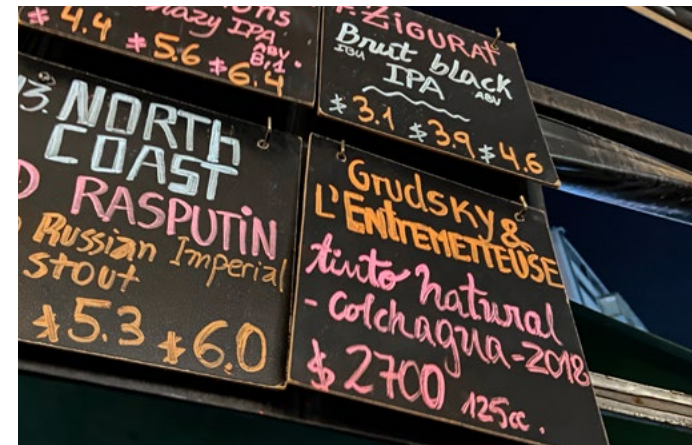 $ 4.4 $ 5.6 $ 6.4
Hazy IPA
ABV 8,1
ZIGURAT
Brut black
IBU IPA ABV
$ 3.1 $ 3.9 $ 4.6
13. NORTH
COAST
RASPUTIN
Russian Imperial
STOUT
$5.3 $6.0
Grudsky &
L'ENTREMETTEUSE
tinto natural
- Colchagua - 2018
$ 2700 125cc.